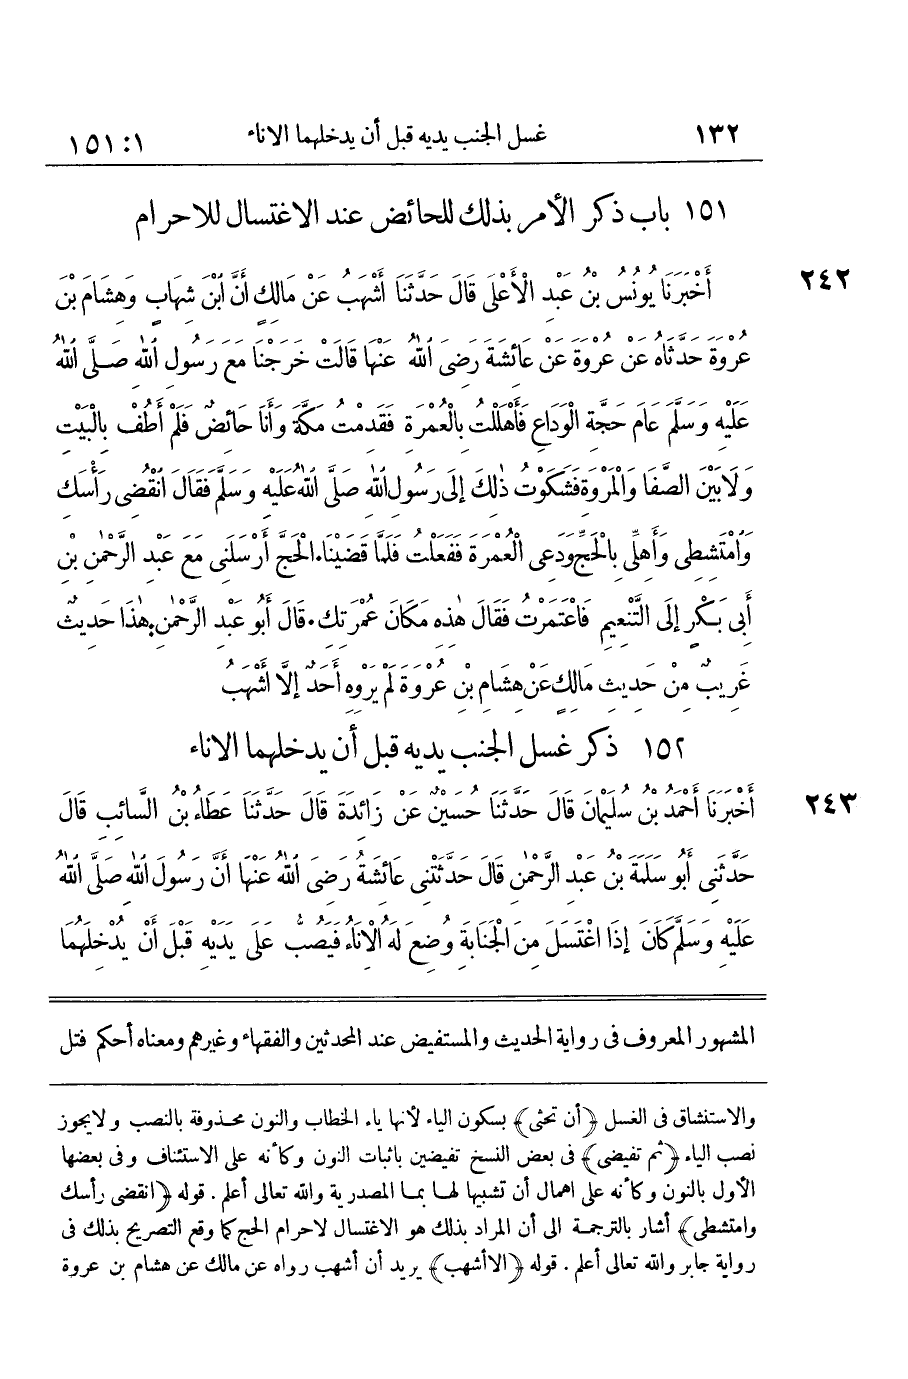 ١٣٢ غسل الجنب يديه قبل أن يدخلهما الاناء ١:١٥١
١٥١ باب ذكر الأمر بذلك للحائض عند الاغتسال للاحرام
٢٤٢ أَخْبَرَنَا يُونُسُ بْنُ عَبْدِ الْأَعْلَى قَالَ حَدَّثَنَا أَشْهَبُ عَنْ مَالِكٍ أَنَّ ابْنَ شِهَابٍ وَهِشَامَ بْنَ
عُرْوَةَ حَدَّثَاهُ عَنْ عُرْوَةَ عَنْ عَائِشَةَ رَضِىَ اللهُ عَنْهَا قَالَتْ خَرَجْنَا مَعَ رَسُولِ اللهِ صَلَّى اللهُ
عَلَيْهِ وَسَلَّمَ عَامَ حَجَّةِ الْوَدَاعِ فَأَهْلَلْتُ بِالْعُمْرَةِ فَقَدِمْتُ مَكَّةَ وَأَنَا حَائِضٌ فَلَمْ أَطُفْ بِالْبَيْتِ
وَلَا بَيْنَ الصَّفَا وَالْمَرْوَةِ فَشَكَوْتُ ذٰلِكَ إِلَى رَسُولِ اللهِ صَلَّى اللهُ عَلَيْهِ وَسَلَّمَ فَقَالَ انْقُضِى رَأْسَكِ
وَامْتَشِطِى وَأَهِلِّى بِالْحَجِّ وَدَعِى الْعُمْرَةَ فَفَعَلْتُ فَلَمَّا قَضَيْنَا الْحَجَّ أَرْسَلَنِى مَعَ عَبْدِ الرَّحْمٰنِ بْنِ
أَبِى بَكْرٍ إِلَى التَّنْعِيمِ فَاعْتَمَرْتُ فَقَالَ هٰذِهِ مَكَانَ عُمْرَتِكِ. قَالَ أَبُو عَبْدِ الرَّحْمٰنِ: هٰذَا حَدِيثٌ
غَرِيبٌ مِنْ حَدِيثِ مَالِكٍ عَنْ هِشَامِ بْنِ عُرْوَةَ لَمْ يَرْوِهِ أَحَدٌ إِلَّا أَشْهَبُ
١٥٢ ذكر غسل الجنب يديه قبل أن يدخلهما الاناء
٢٤٣ أَخْبَرَنَا أَحْمَدُ بْنُ سُلَيْمَانَ قَالَ حَدَّثَنَا حُسَيْنٌ عَنْ زَائِدَةَ قَالَ حَدَّثَنَا عَطَاءُ بْنُ السَّائِبِ قَالَ
حَدَّثَنِى أَبُو سَلَمَةَ بْنُ عَبْدِ الرَّحْمٰنِ قَالَ حَدَّثَتْنِى عَائِشَةُ رَضِىَ اللهُ عَنْهَا أَنَّ رَسُولَ اللهِ صَلَّى اللهُ
عَلَيْهِ وَسَلَّمَ كَانَ إِذَا اغْتَسَلَ مِنَ الْجَنَابَةِ وُضِعَ لَهُ الْإِنَاءُ فَيَصُبُّ عَلَى يَدَيْهِ قَبْلَ أَنْ يُدْخِلَهُمَا
المشهور المعروف فى رواية الحديث والمستفيض عند المحدثين والفقهاء وغيرهم ومعناه أحكم فتل
والاستنشاق فى الغسل ﴿أن تحثى﴾ بسكون الياء لأنها ياء الخطاب والنون محذوفة بالنصب ولا يجوز
نصب الياء ﴿ثم تفيضى﴾ فى بعض النسخ تفيضين باثبات النون وكأنه على الاستئناف وفى بعضها
الأول بالنون وكأنه على اهمال أن تشبيها لها بما المصدرية والله تعالى أعلم . قوله ﴿انقضى رأسك
وامتشطى﴾ أشار بالترجمة الى أن المراد بذلك هو الاغتسال لاحرام الحج كما وقع التصريح بذلك فى
رواية جابر والله تعالى أعلم . قوله ﴿الا أشهب﴾ يريد أن أشهب رواه عن مالك عن هشام بن عروة